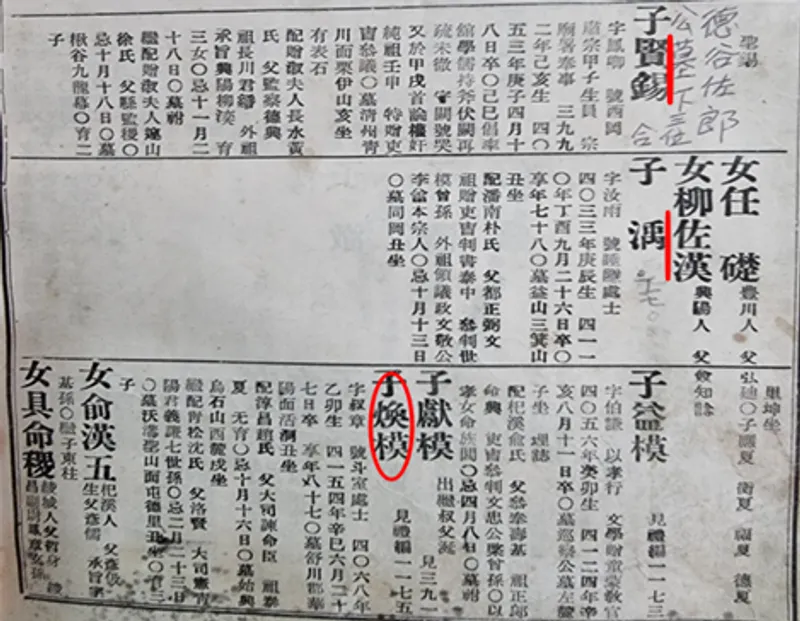 子賢錫
字鳳卿 號西岡
肅宗甲子生員 宗
廟署奉事 三九九
二年己亥生 四〇
五三年庚子四月十
八日卒〇己巳倡率
館學儒持斧伏闕再
又於甲戌首論
純祖壬申 特贈吏
曹參議〇墓淸州靑
川面栗伊山亥坐
有表石
配贈淑夫人長水黃
氏 父監察德興
祖長川君 外祖
承旨興陽柳 育
三女〇忌十一月二
十八日〇墓祔
繼配贈淑夫人
徐氏 父縣監
忌十月十八日〇墓
楸谷九龍幕〇育二
子
德谷佐郎
公墓下
合
女任礎
豊川人 父
女柳佐漢
興陽人 父
子 㵧
字汝雨 號 處士
四〇三三年庚辰生 四一一
〇年丁酉九月二十六日卒〇
享年七十八〇墓益山三箕山
丑坐
配潘南朴氏 父都正弼文
祖贈吏曹判書泰中 參判世
模曾孫 外祖領議政文敬公
李 本宗人〇忌十月十三日
〇墓同岡丑坐
里坤坐
子益模
見禮編一一七三
字伯謙 以孝行 文學贈童蒙敎官
四〇五六年癸卯生 四一二四年辛
亥八月十一日卒〇墓 公墓左麓
子坐
配杞溪兪氏 父參奉壽基 祖正郎
命興 吏曹參判文忠公 曾孫〇以
孝女命旌閭〇忌四月八日〇墓祔
子獻模
出繼叔父 見三九一
子煥模
見禮編一一七五
字叔章 號斗室處士 四〇六八年
乙卯生 四一五四年辛巳六月二十
七日卒 享年八十七〇墓舒川郡華
陽面活洞丑坐
配淳昌趙氏 父大司諫命臣 祖泰
夏 无育〇忌十月十六日〇墓始興
烏石山西麓戌坐
繼配靑松沈氏 父洛賢 大司憲靑
陽君義謙七世孫〇忌二月二十三日
〇墓沃溝郡山面屯德里丑坐〇育三
子
女兪漢五
杞溪人 父彦
生父彦儒 承旨宇
基孫〇繼子東柱
女具命稷
綾城人